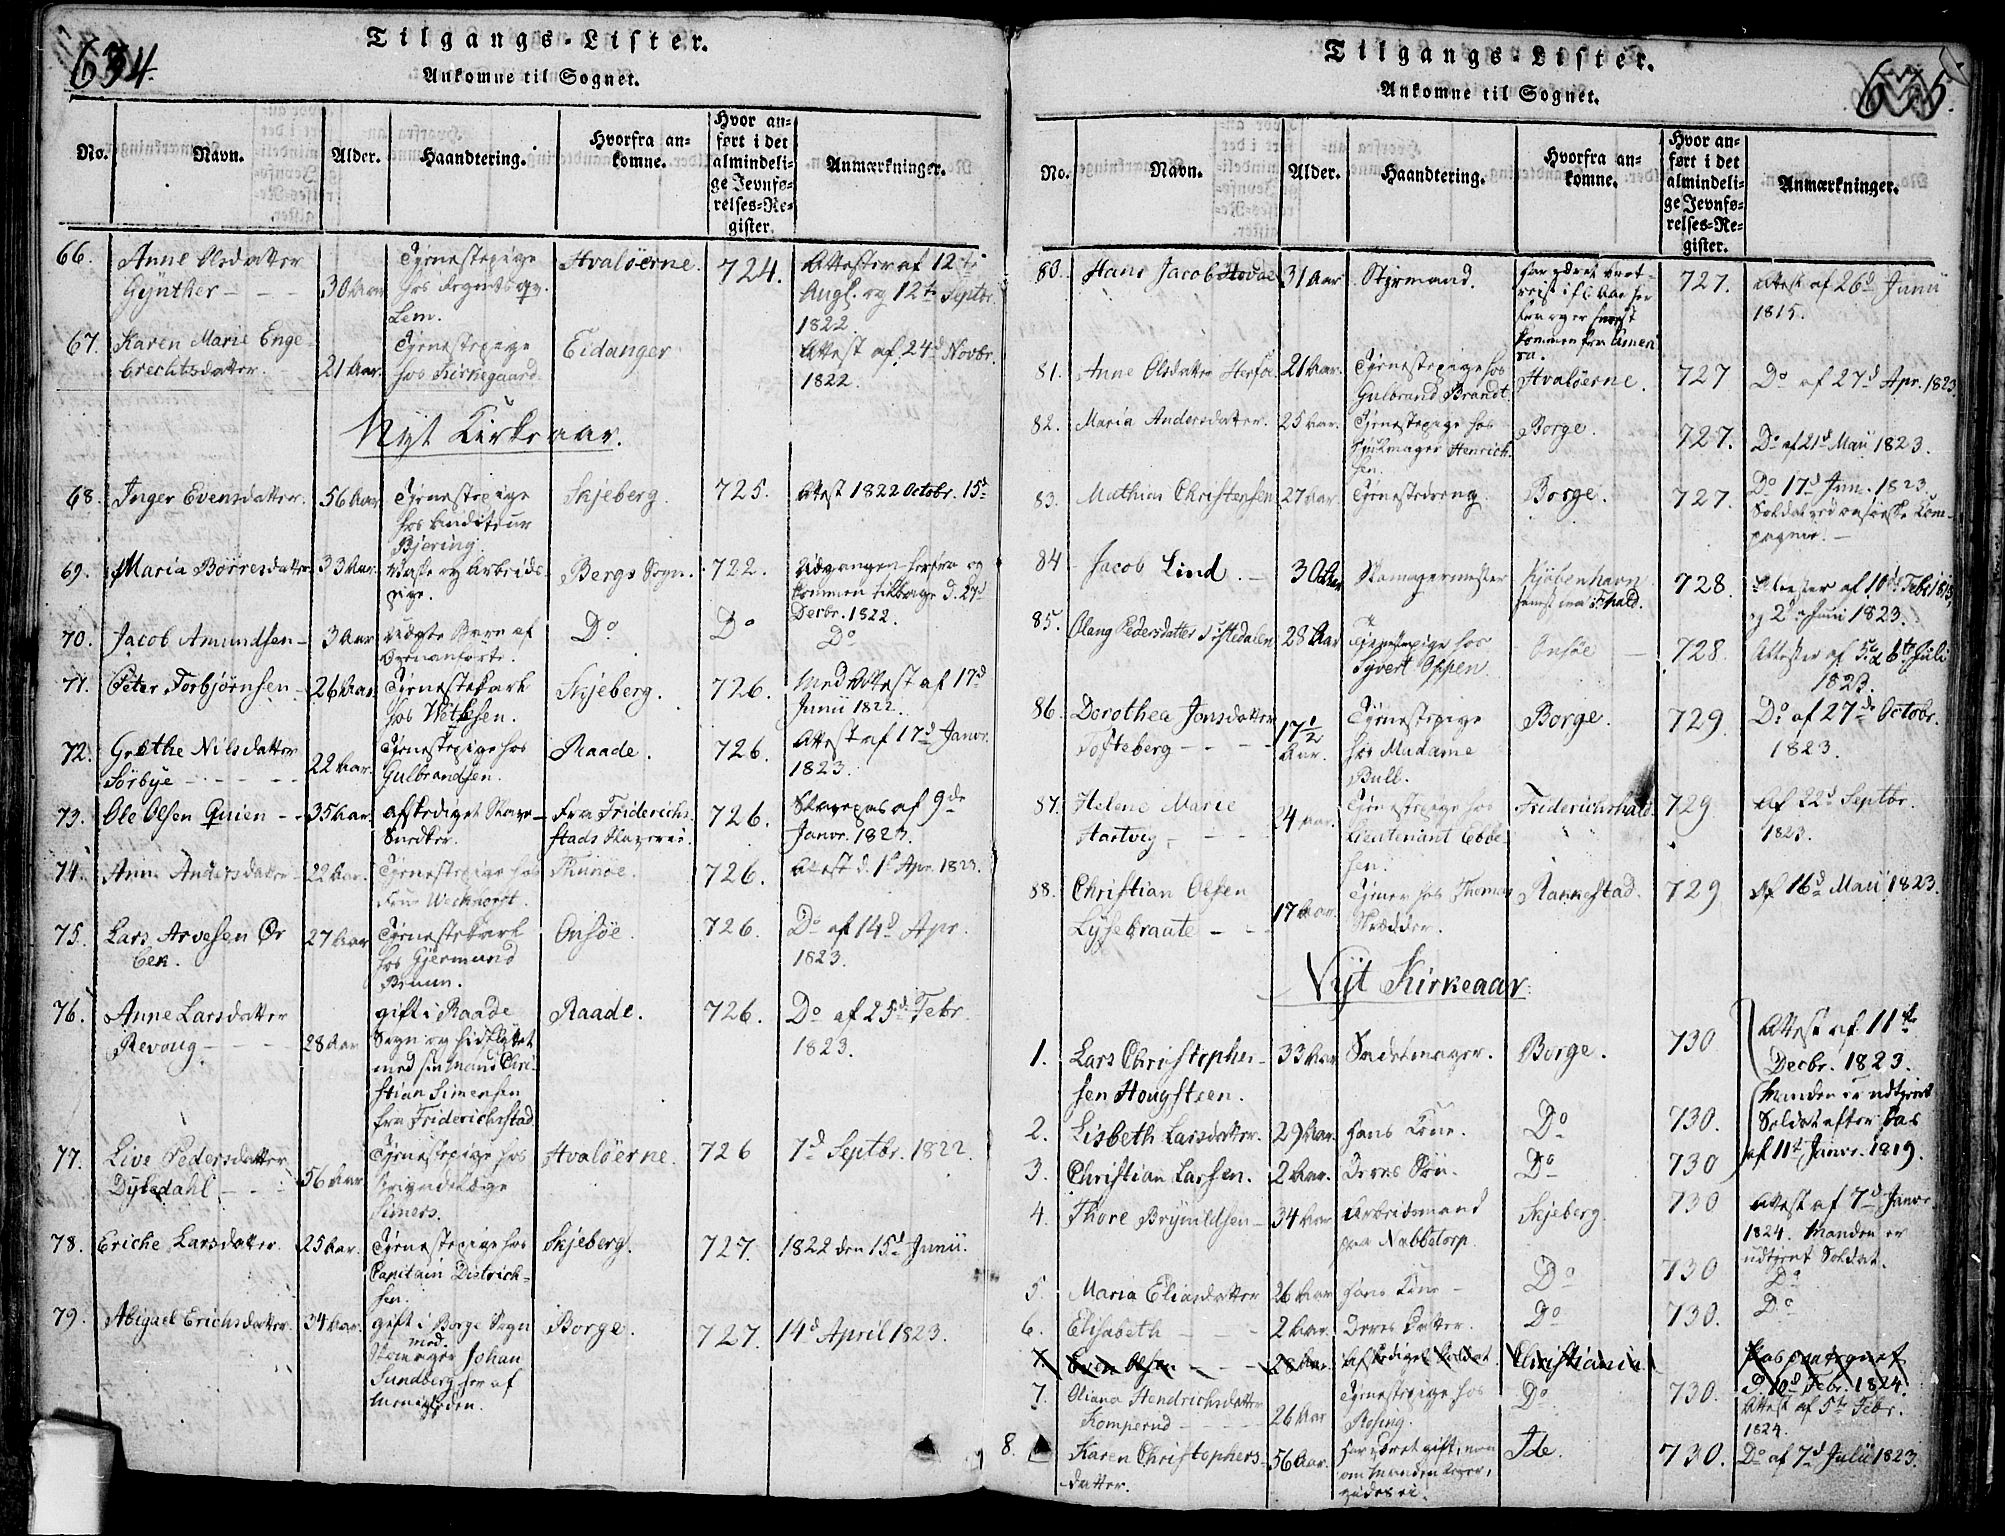 634
Tilgangs-Lister.
Ankomne til Sognet.
No. Navn. Alder. Haandtering. Hvorfra an-
komne. Hvor an-
ført i det
almindeli-
ge Jevnfø-
relses-Re-
gister. Anmærkninger.
66. Anne Olsdatter
Gÿnther - - 30 Aar Tjenestepige
hos
Lem. Hvaløerne. 724. Attester af 12te
Augs. og 12te Septbr.
1822.
67. Karen Marie Enge-
brechtsdatter. 21 Aar. Tjenestepige
hos Kirkegaard. Eidanger Attest af 24d Novbr.
1822.
Nyt Kirkeaar.
68. Inger Evensdatter. 56 Aar Tjenestepige
hos Conditeur
Bjering. Skjeberg. 725. Attest 1822 Octobr. 15d
69. Maria Börresdatter 33 Aar. Vaske og Arbeids-
pige. Bergs Sogn. 722. Udgangen herfra og
kommen tilbage d. 27d
Decbr. 1822.
70. Jacob Amundsen - 3 Aar uægte Barn af
Ovenanførte. Do Do Do
71. Peter Torbjørnsen - 26 Aar. Tjenestekarl
hos Wetlesen. Skjeberg. 726. Med Attest af 17d
Junii 1822.
72. Grethe Nilsdatter
Sörbye - - - 22 Aar. Tjenestepige hos
Gulbrandsen. Raade. 726. Attest af 17d Janvr.
1823.
73. Ole Olsen Quien - - 35 Aar. afskediget Slave-
Snedker. Fra Friderich-
stads Slaverie. 726. Slavepas af 9de
Janvr. 1823.
74. Anne Andersdatter - 22 Aar. Tjenestepige hos
Frue Weckhorst. 726. Attest d. 1d Apr. 1823.
75. Lars Arvesen Ør
bek. 27 Aar Tjenestekarl
hos Gjermund
Bruun. Onsöe. 726. Do af 14d Apr.
1823.
76. Anne Larsdatter
Revoug - - - 28 Aar gift i Raade
Sogn og hidflyttet
med sin Mand Chri-
stian Simensen
fra Friderichstad. Raade. 726. Do af 25d Febr.
1823.
77. Live Pedersdatter
Dyledahl - - - 56 Aar Tjenestepige hos
Simers. Hvaløerne. 726 7d Septbr. 1822.
78. Eriche Larsdatter. 25 Aar. Tjenestepige hos
Capitain Districh-
sen. Skjeberg. 727. 1822 den 15d Junii.
79. Abigael Erichsdatter. 34 Aar. gift i Borge Sogn
med
Skomager Johan
Sundberg her af
Menigheden. Borge. 727. 14d April 1823.
635.
Tilgangs-Lister.
Ankomne til Sognet.
No. Navn. Alder. Haandtering. Hvorfra an-
komne. Hvor an-
ført i det
almindeli-
ge Jevnfø-
relses-Re-
gister. Anmærkninger.
80. Hans Jacob 31 Aar Styrmand. har været bort-
reist i fl. Aar her
fra og er senest
kommen fra Ameri
ca. 727. Attest af 26d Junii
1815.
81. Anne Olsdatter Herföe. 21 Aar. Tjenestepige hos
Gulbrand Brandt. Hvaløerne. 727 Do af 27d Apr. 1823
82. Maria Andersdatter. 25 Aar. Tjenestepige hos
Hjulmager Henrich-
sen. Borge. 727. Do af 21d Maii 1823.
83. Mathias Christensen 27 Aar Tjenestedreng. Borge. 727. Do 17d Jun. 1823.
Soldat ved onsöeske Com-
pagnie. -
84 Jacob Lind. - 30 Aar Skomagermester Kjöbenhavn
senest fra Fhald. 728. Attester af 10de Febr 1815
og 2d Junii 1823.
85. Olaug Pedersdatter Tistedalen 28 Aar Tjenestepige hos
Syvert Oppen. Onsöe - 728. Attester af 5te & 6te Julii
1823.
86. Dorothea Jonsdatter
Tofteberg - - - 17 1/2
Aar. Tjenestepige
hos Madame
Bull. Borge. 729. Do af 27de Octobr.
1823.
87. Helene Marie
Hartvig - - - 24 Aar. Tjenestepige hos
Lieutenant Ebbe-
sen. Friderichshald. 729 Af 22d Septbr.
1823.
88. Christian Olsen
Lysebraate - - 17 Aar. Tjener hos Thomas
Skrædder. Rakkestad. 729 Af 16d Maii 1823.
Nyt Kirkeaar
1. Lars Christopher-
sen Hougsteen. 33 Aar Sadelmager. Borge. 730 Attest af 11te
Decbr. 1823.
Manden er udtjent
Soldat efter Pas
af 11te Janvr. 1819.
2. Lisbeth Larsdatter. 29 Aar. hans Kone. Do 730.
3. Christian Larsen. 2 Aar. Deres Sön. Do 730
4. Thore Brynildsen - 34 Aar Arbeidsmand
paa Nabbetorp Skjeberg. 730 Attest af 7d Janvr.
1824. Manden er
udtjent Soldat.
5. Maria Eliasdatter 26 Aar hans Kone - Do 730 Do
6. Elisabeth - - - 2 Aar. Deres Datter. Do 730. Do
7. Even Olsen - - - 28 Aar. Afskediget Soldat Christiania Pas paategnet
d. 10d Febr. 1824.
7. Oliana Hendrichsdatter
Komperud - - - 26 Aar Tjenestepige hos
Rosing. Do 730. Attest af 5te Febr.
1824.
8. Karen Christophers-
datter. 56 Aar. har været gift, men
om Manden lever,
vides ei. Ide. 730. Do af 7d Julii 1823.